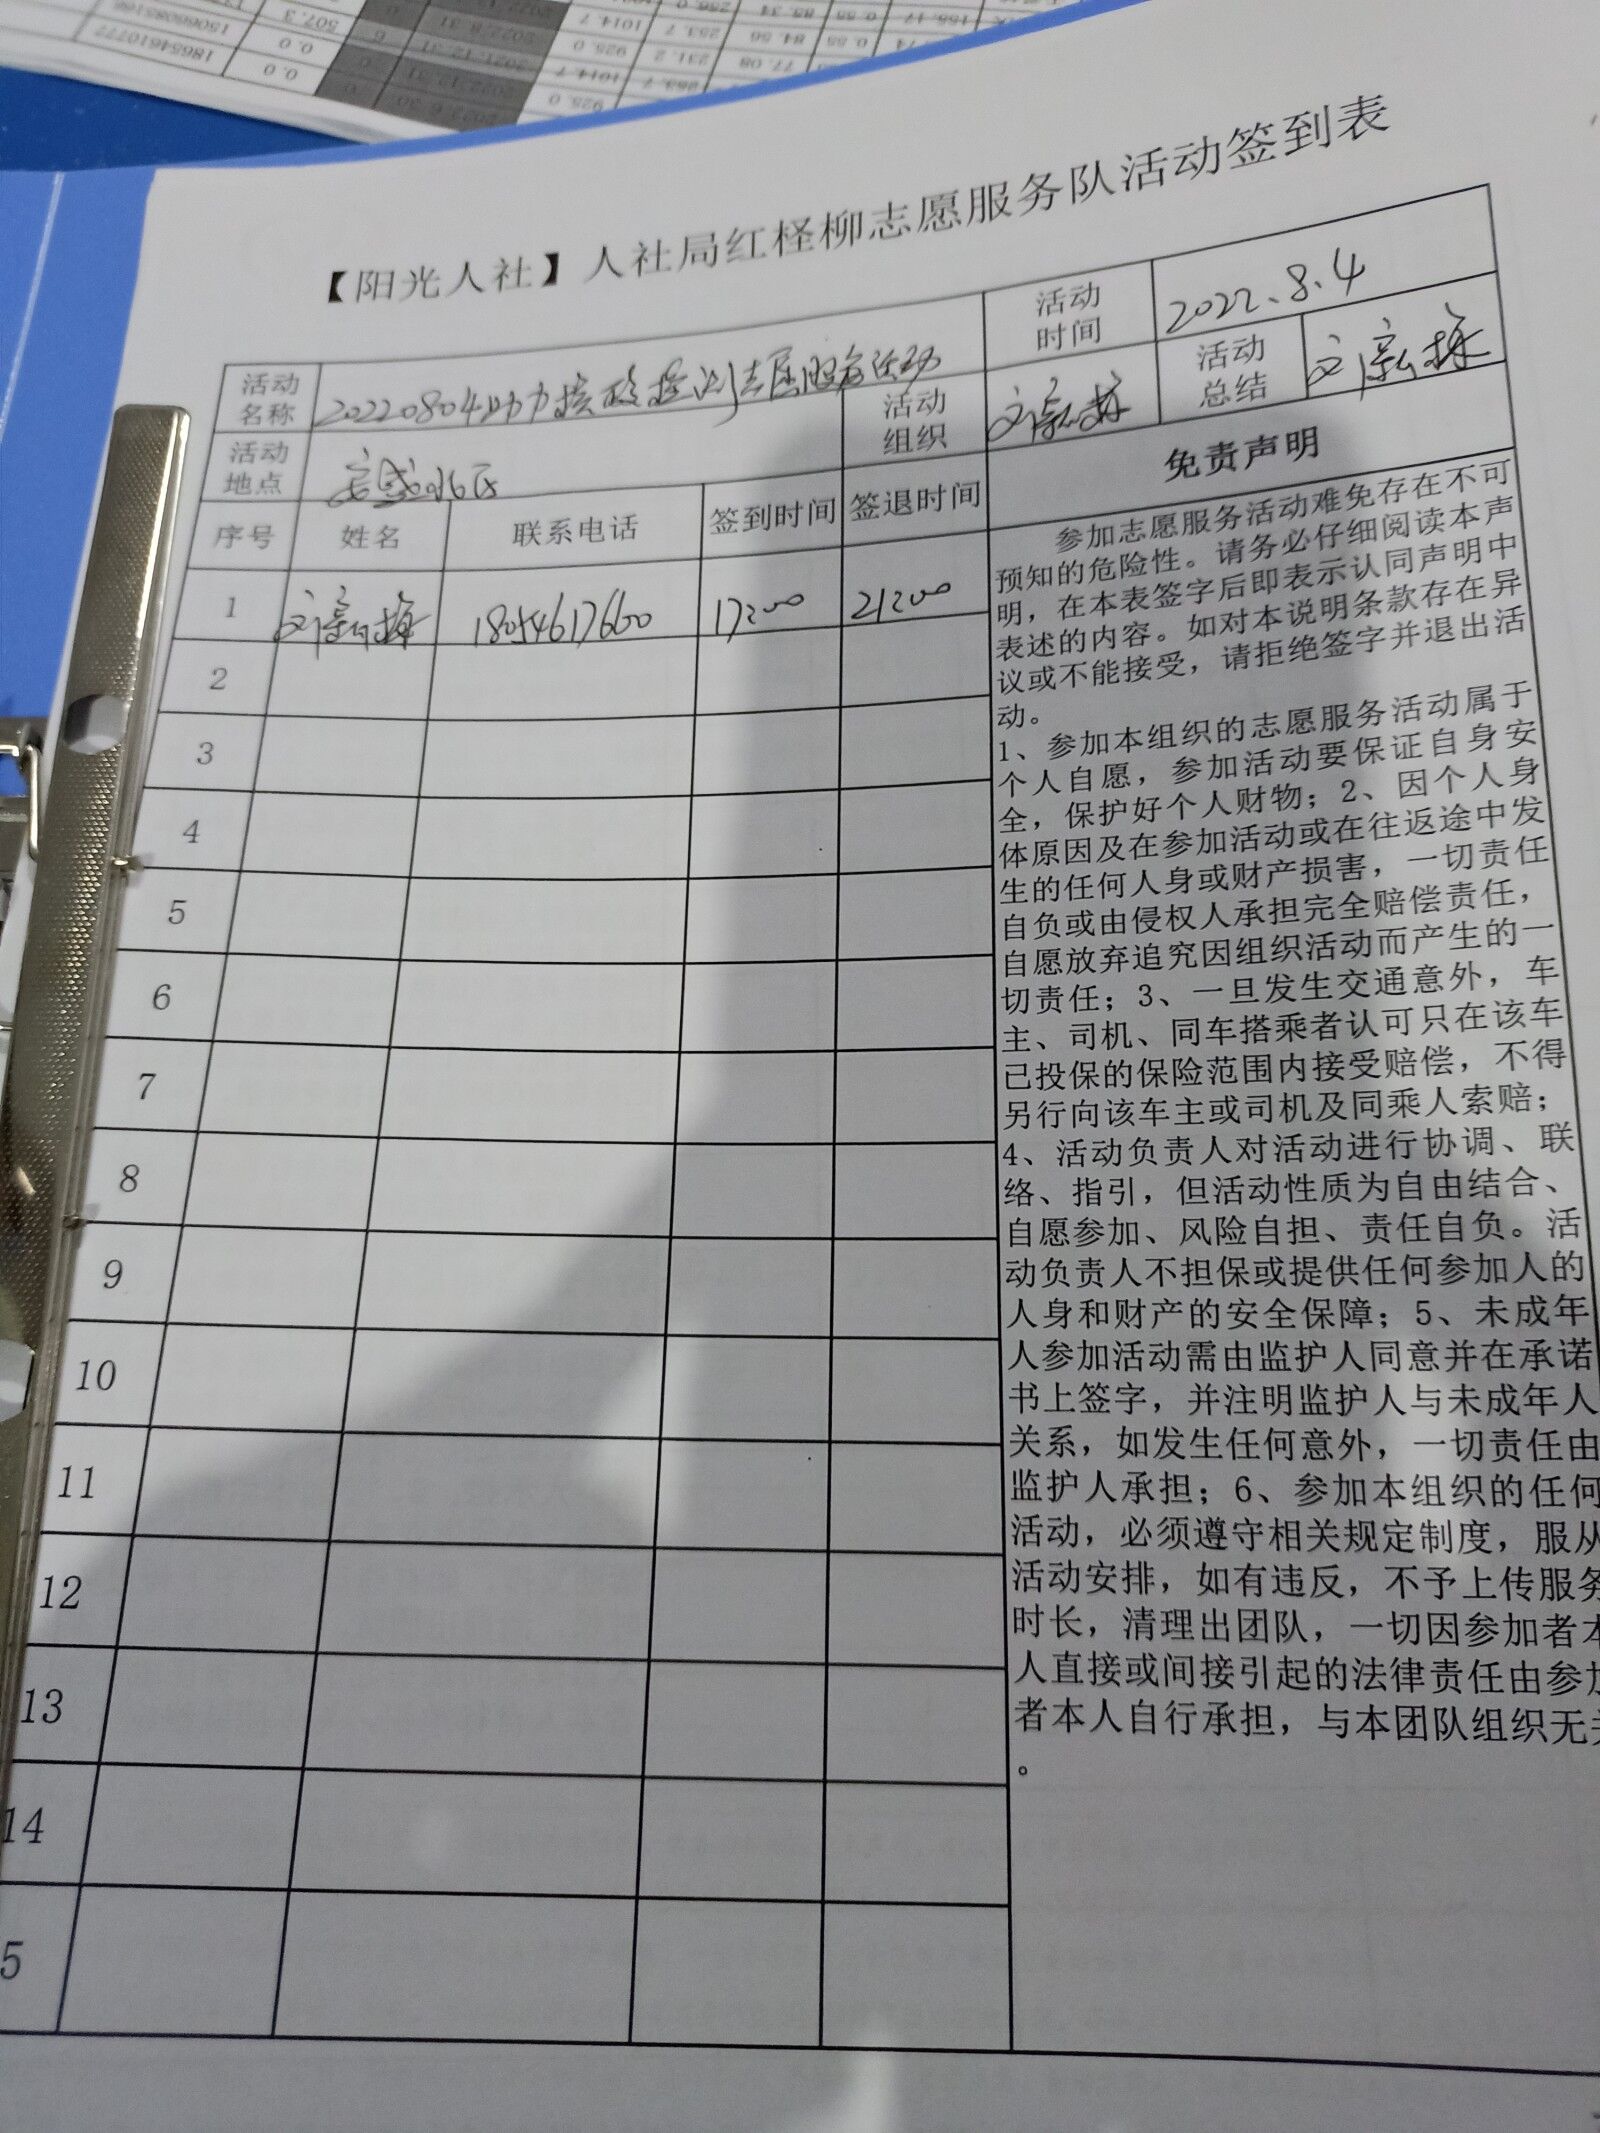 【阳光人社】人社局红柽柳志愿服务队活动签到表
活动名称
20220804助力核酸检测志愿服务活动
活动时间
2022.8.4
活动地点
活动组织
活动总结
序号
姓名
联系电话
签到时间
签退时间
免责声明
1
18054617660
17:00
21:00
2
3
4
5
6
7
8
9
10
11
12
13
14
5
参加志愿服务活动难免存在不可
预知的危险性。请务必仔细阅读本声
明，在本表签字后即表示认同声明中
表述的内容。如对本说明条款存在异
议或不能接受，请拒绝签字并退出活
动。
1、参加本组织的志愿服务活动属于
个人自愿，参加活动要保证自身安
全，保护好个人财物；2、因个人身
体原因及在参加活动或在往返途中发
生的任何人身或财产损害，一切责任
自负或由侵权人承担完全赔偿责任，
自愿放弃追究因组织活动而产生的一
切责任；3、一旦发生交通意外，车
主、司机、同车搭乘者认可只在该车
已投保的保险范围内接受赔偿，不得
另行向该车主或司机及同乘人索赔；
4、活动负责人对活动进行协调、联
络、指引，但活动性质为自由结合、
自愿参加、风险自担、责任自负。活
动负责人不担保或提供任何参加人的
人身和财产的安全保障；5、未成年
人参加活动需由监护人同意并在承诺
书上签字，并注明监护人与未成年人
关系，如发生任何意外，一切责任由
监护人承担；6、参加本组织的任何
活动，必须遵守相关规定制度，服从
活动安排，如有违反，不予上传服务
时长，清理出团队，一切因参加者本
人直接或间接引起的法律责任由参加
者本人自行承担，与本团队组织无关
。
18654610772
0.0
507.3